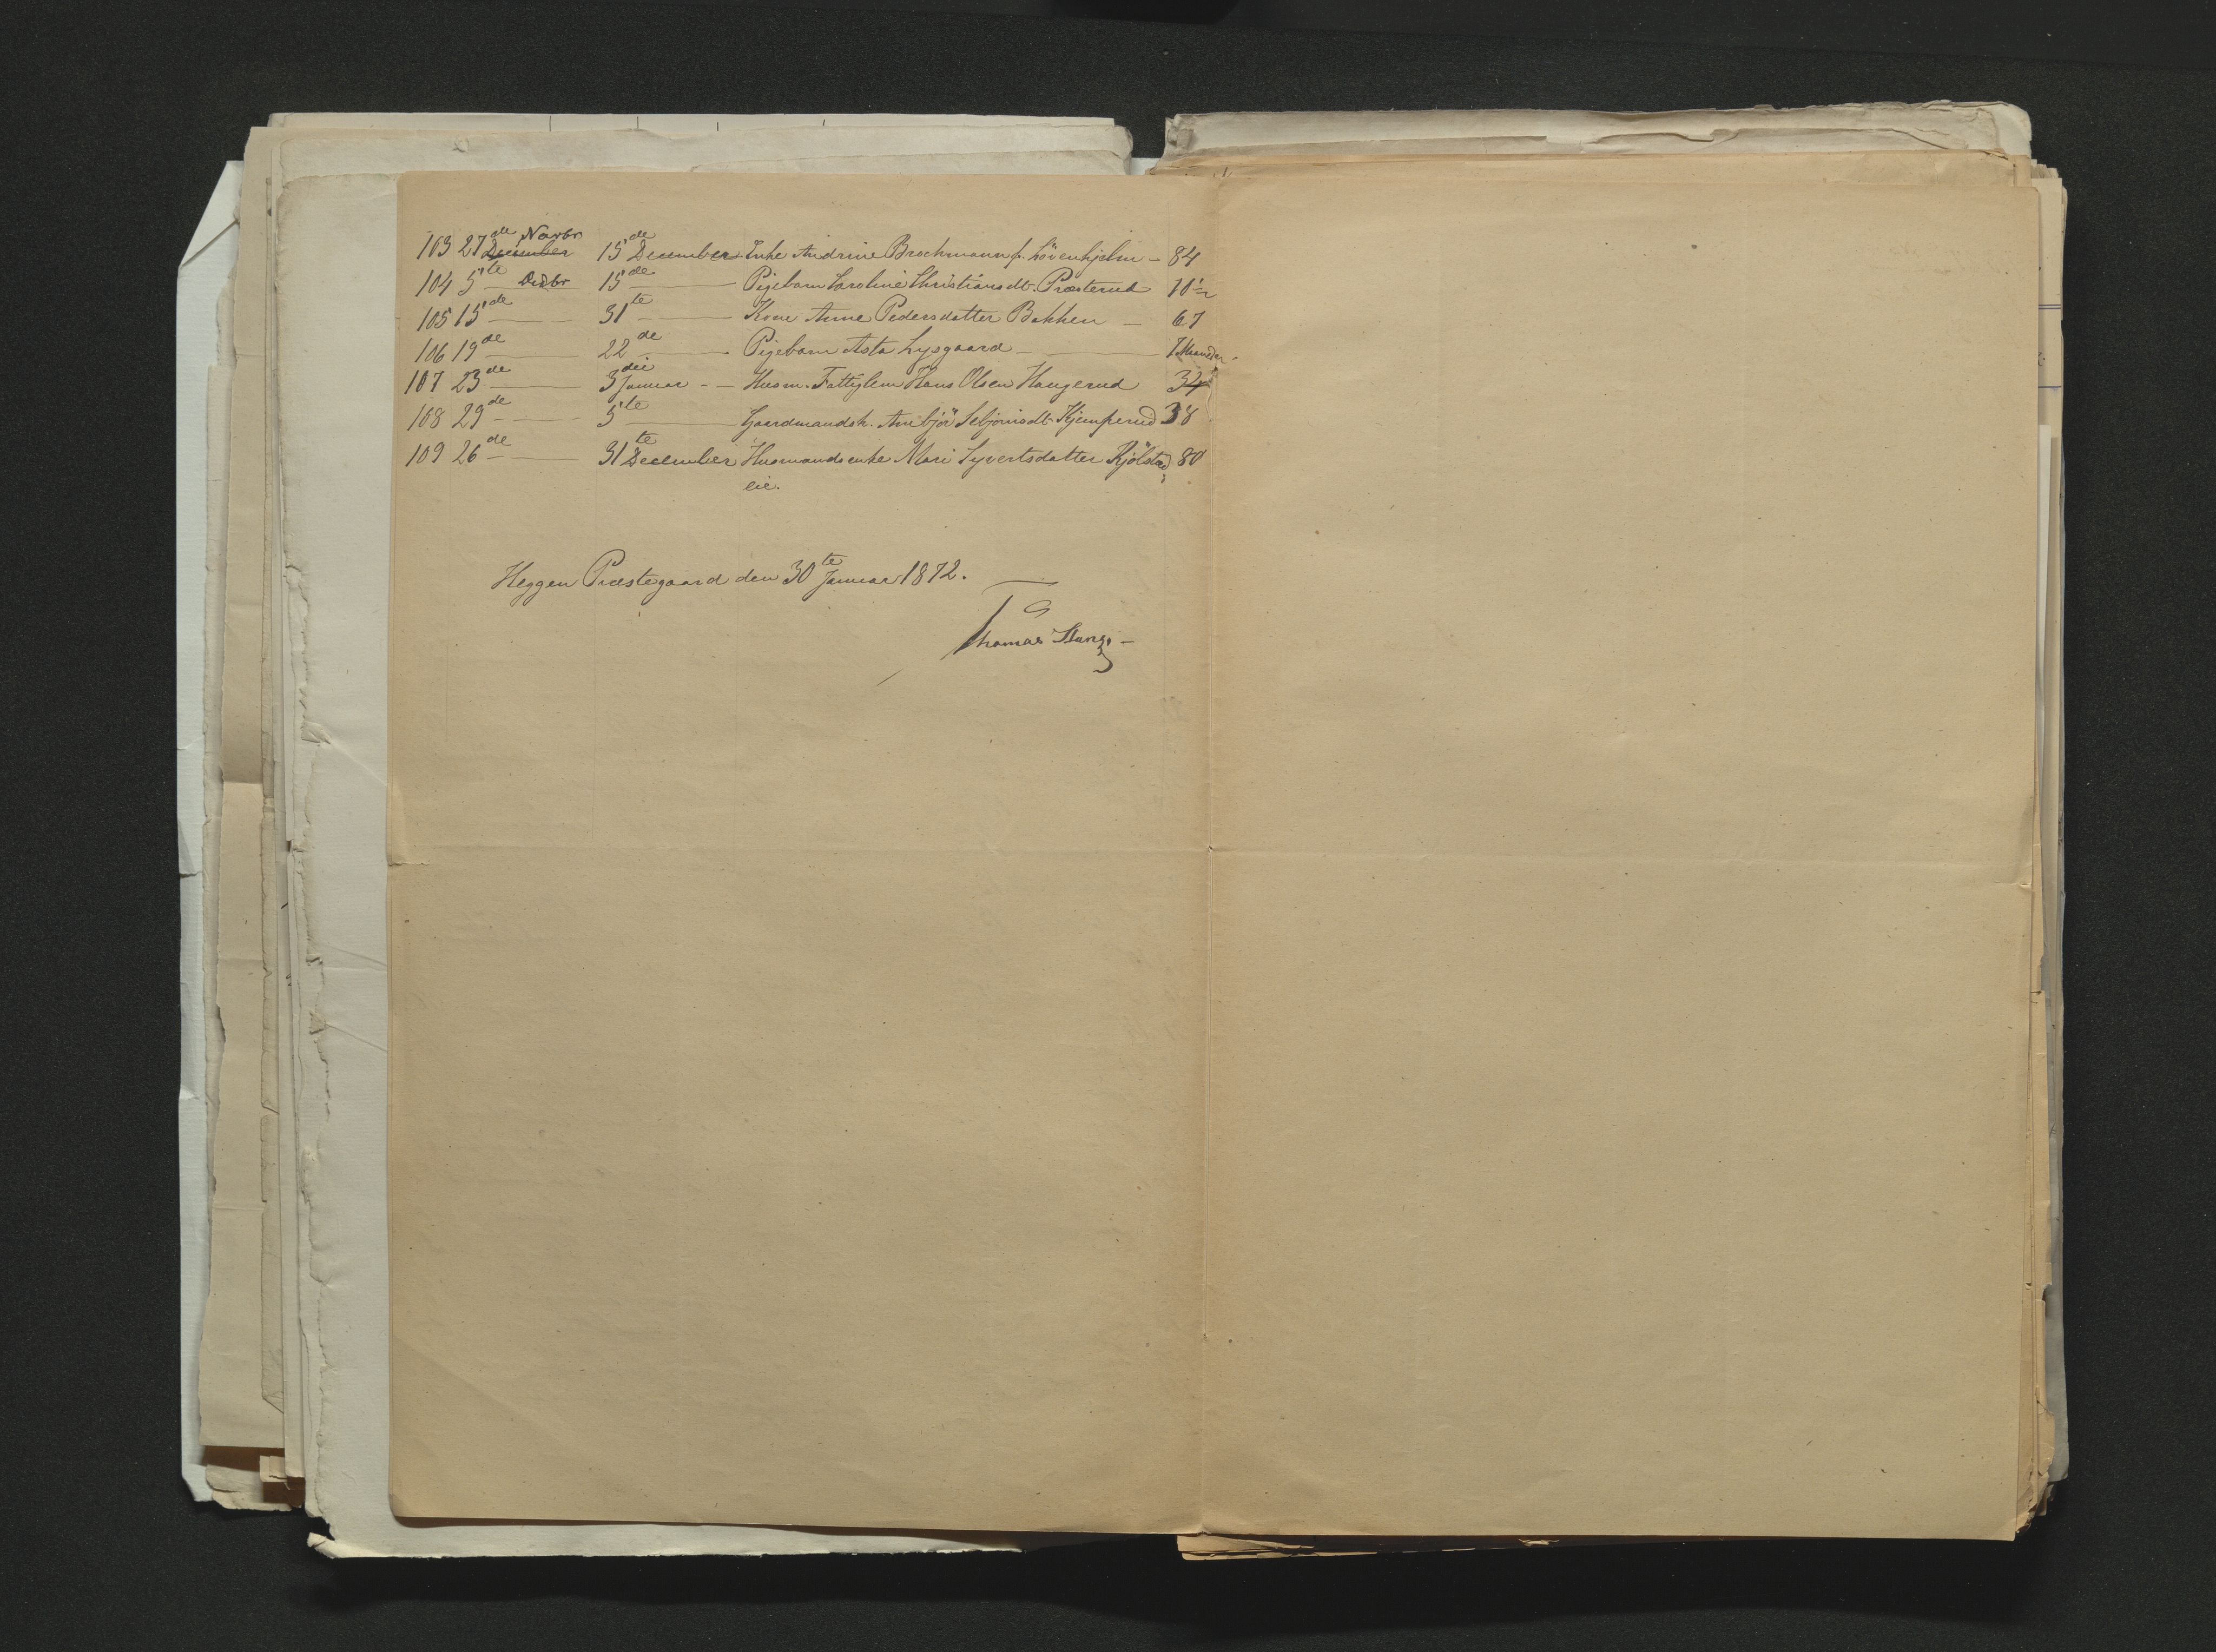 103 27de Novbr December 15de December Enke Andrine Brochmann f. Lövenhjelm - 84
104 5te - Decbr 15de - Pigebarn Caroline Christiansdt. Præsterud 10½
105 15de - 31te - Kone Anne Pedersdatter Bakken - 67
106 19de - 22de - Pigebarn Asta Lysgaard - 7 Maaneder.
107 23de - 3die Januar - Husm. Fattiglem Hans Olsen Haugerud 34
108 29de - 5te - Gaardmandsk. Ambjör Sebjörnsdt. Kjemperud 38
109 26de - 31te December Husmandsenke Mari Syvertsdatter Kjölstad 80
eie.
Heggen Præstegaard den 30te Januar 1872.
Thomas Stang